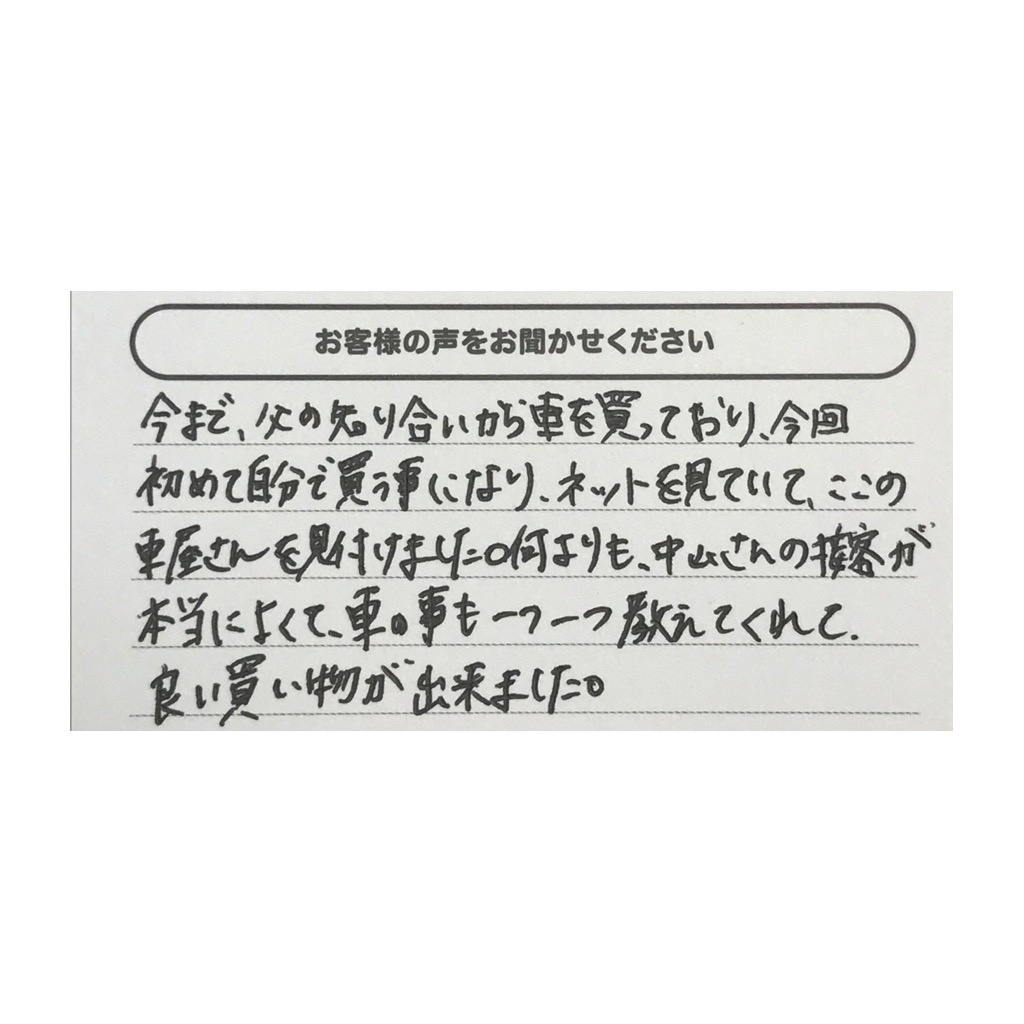 お客様の声をお聞かせください
今まで、父の知り合いから車を買っており、今回
初めて自分で買う事になり、ネットを見ていて、ここの
車屋さんを見付けました。何よりも、中山さんの接客が
本当によくて、車の事も一つ一つ教えてくれて、
良い買い物が出来ました。